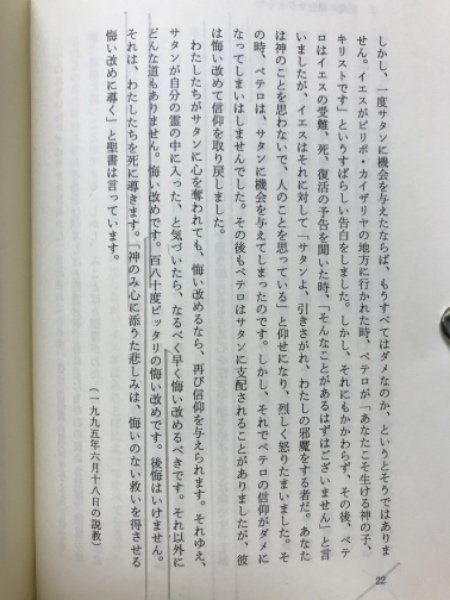 しかし、一度サタンに機会を与えたならば、もうすべてはダメなのか、というとそうではありま
せん。イエスがピリポ・カイザリヤの地方に行かれた時、ペテロが「あなたこそ生ける神の子、
キリストです」というすばらしい告白をしました。しかし、それにもかかわらず、その後、ペテ
ロはイエスの受難、死、復活の予告を聞いた時、「そんなことがあるはずはございません」と言
いましたが、イエスはそれに対して「サタンよ、引きさがれ、わたしの邪魔をする者だ。あなた
は神のことを思わないで、人のことを思っている」と仰せになり、烈しく怒りたまいました。そ
の時、ペテロは、サタンに機会を与えてしまったのです。しかし、それでペテロの信仰がダメに
なってしまいはしませんでした。その後もペテロはサタンに支配されることがありましたが、彼
は悔い改めて信仰を取り戻しました。
わたしたちがサタンに心を奪われても、悔い改めるなら、再び信仰を与えられます。それゆえ、
サタンが自分の霊の中に入った、と気づいたら、なるべく早く悔い改めるべきです。それ以外に
どんな道もありません。悔い改めです。百八十度ピッタリの悔い改めです。後悔はいけません。
それは、わたしたちを死に導きます。「神のみ心に添うた悲しみは、悔いのない救いを得させる
悔い改めに導く」と聖書は言っています。
(一九九五年六月十八日の説教)
22